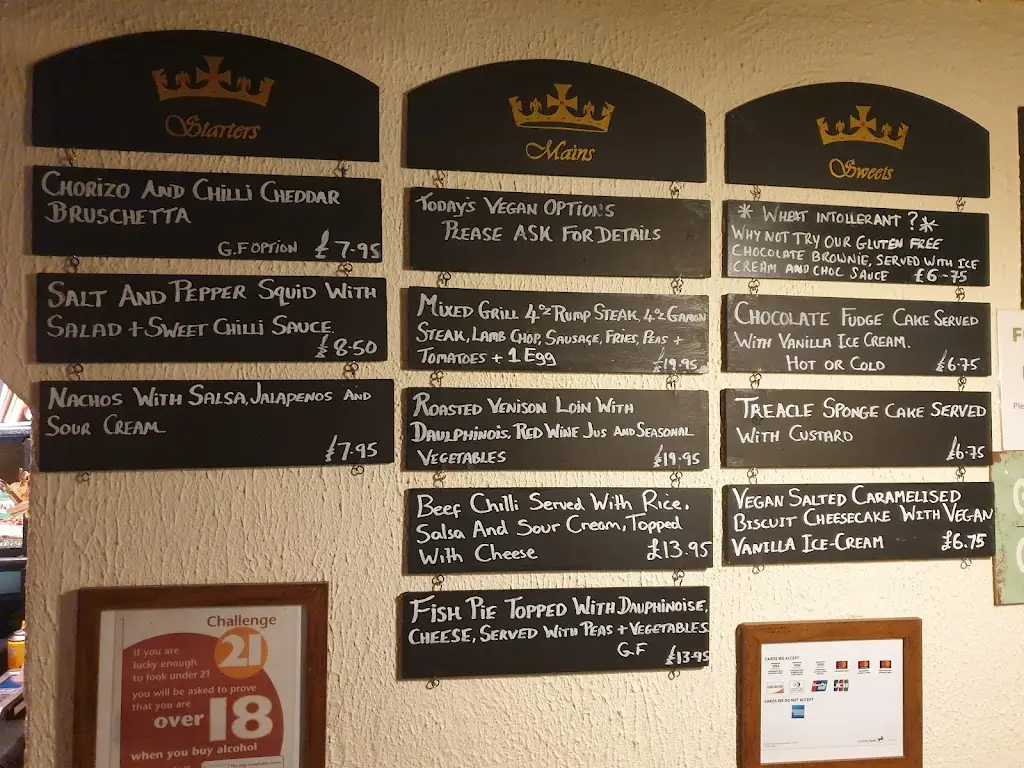 Starters
CHORIZO AND CHILLI CHEDDAR
BRUSCHETTA
G.F OPTION £7-95
SALT AND PEPPER SQUID WITH
SALAD + SWEET CHILLI SAUCE.
£8.50
NACHOS WITH SALSA, JALAPENOS AND
SOUR CREAM
£7.95
Mains
TODAY'S VEGAN OPTIONS
PLEASE ASK FOR DETAILS
MIXED GRILL 4oz RUMP STEAK, 4oz GAMON
STEAK, LAMB CHOP, SAUSAGE, FRIES, PEAS +
TOMATOES + 1 EGG £19.95
ROASTED VENISON LOIN WITH
DAULPHINOIS, RED WINE JUS AND SEASONAL
VEGETABLES £19.95
Beef Chilli Served With Rice,
Salsa And Sour Cream, Topped
With Cheese £13.95
FISH PIE TOPPED WITH DAUPHINOISE,
CHEESE, SERVED WITH PEAS + VEGETABLES
G.F £13.95
Sweets
* WHEAT INTOLLERANT ? *
WHY NOT TRY OUR GLUTEN FREE
CHOCOLATE BROWNIE, SERVED WITH ICE
CREAM AND CHOC SAUCE £6-75
CHOCOLATE FUDGE CAKE SERVED
WITH VANILLA ICE CREAM.
HOT OR COLD £6.75
TREACLE SPONGE CAKE SERVED
WITH CUSTARD
£6.75
VEGAN SALTED CARAMELISED
BISCUIT CHEESECAKE WITH VEGAN
VANILLA ICE-CREAM £6.75
Challenge
21
If you are
lucky enough
to look under 21
you will be asked to prove
that you are
over 18
when you buy alcohol
CARDS WE ACCEPT
CARDS WE DO NOT ACCEPT